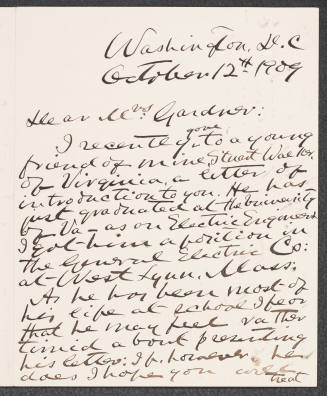 Washington, D.C
October 12th 1909
Dear Mrs Gardner:
I recently gave to a young
friend of mine, Stuart Walker,
of Virginia, a letter of
introduction to you. He has
just graduated at the University
of Va – as an Electric Engineer
I got him a position in
the General Electric Co:
at West Lynn, Mass:
As he has been most of
his life at school I fear
that he may feel rather
timid about presenting
his letter: If, however, he
does I hope you will
treat